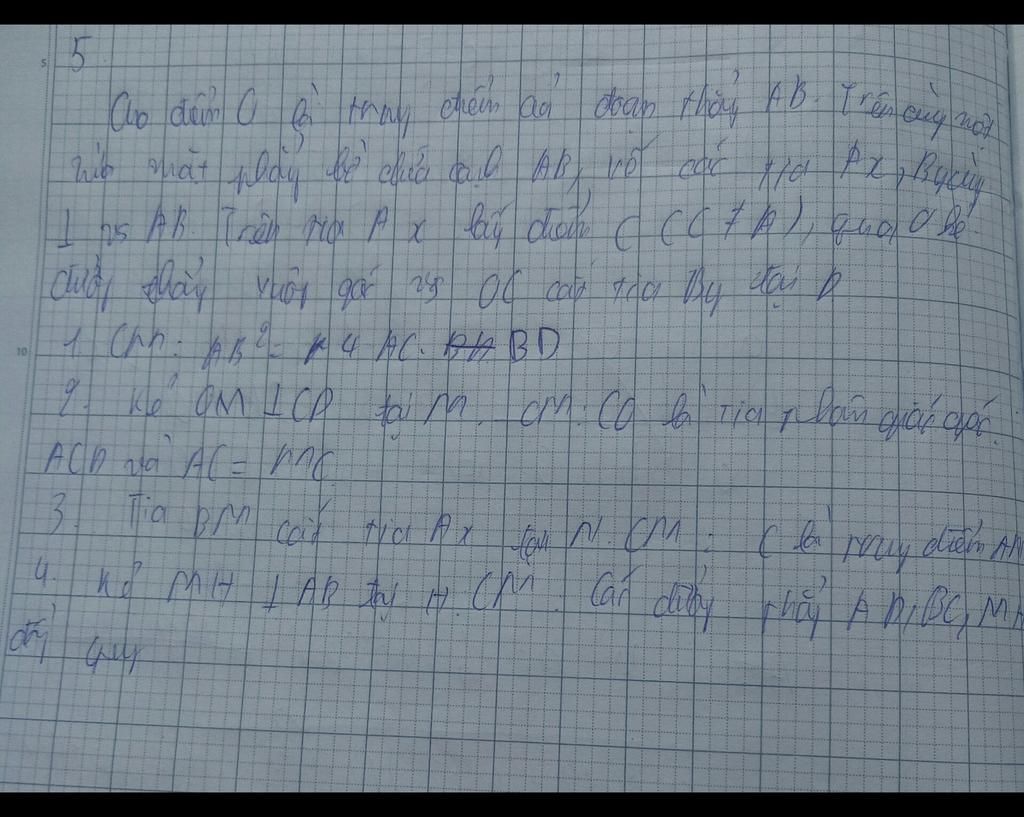 5
Cho điểm O là trung điểm của đoạn thẳng AB. Trên cùng một
nửa mặt phẳng bờ chứa cạnh AB, vẽ các tia Ax, By cùng
⊥ vs AB. Trên tia Ax lấy điểm C (C ≠ A), qua O kẻ
đường thẳng vuông góc vs OC cắt tia By tại D
1. CM: AB² = 4 AC. BD
2. Kẻ OM ⊥ CD tại M. CM: CO là tia phân giác góc
ACD và AC = MC
3. Tia BM cắt tia Ax tại N. CM: C là trung điểm AN
4. Kẻ MH ⊥ AB tại H. CM: Các đường thẳng AD, BC, MH
đồng quy
5
10